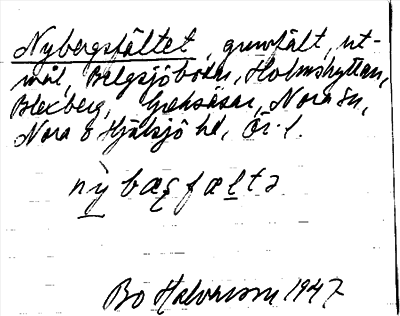 Nybergsfältet, gruvfält, ut-
mål, Belgsjöboda, Holmshyttan,
Blexberg, Nora sn,
Nora o Hjulsjö hd, Ör. l.
nybæʂfæltə
Bo Halvarsson 1947